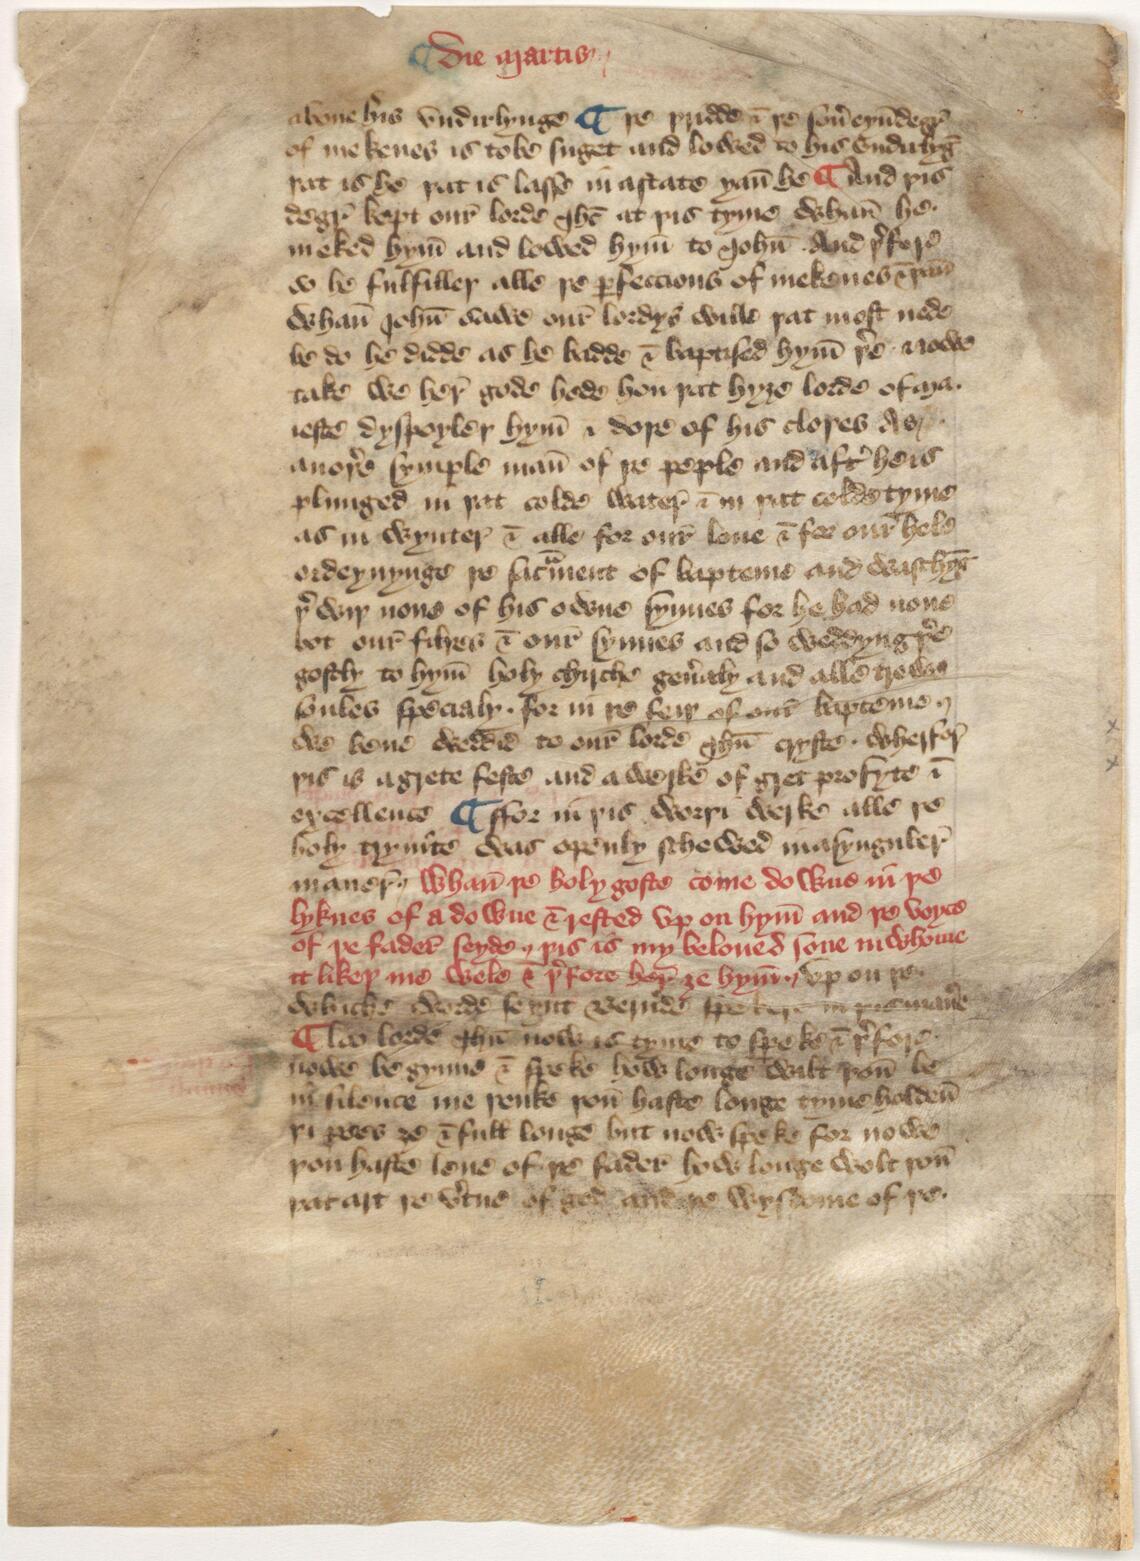 ¶ Die Martis
aboue his vndirlynge ¶ þe þridde ⁊ þe sou̅eyn degr̅
of mekenes is to be suget and lowed to his Vndirlyg̅
þat is he þat is lasse in astate þan̅ he ¶ And þis
degr̅ kept our̅ lorde Ihc̅ at þis tyme whan̅ he
meked hym̅ and lowed hym̅ to Iohn̅ . And þ̕fore
he fulfilleþ alle þe ꝑfeccions of mekenes ⁊ þan̅
whan̅ Iohn̅ sawe our̅ lordys wille þat most nede
be do he didde as he badde ⁊ baptised hym̅ þ̕e . nowe
take we her̅ gode hede hou þat hyȝe lorde of ma
ieste dyspoyleþ hym̅ ⁊ doþe of his cloþes As
anoþ̕e symple man̅ of þe peple and aft̕ he is
plunged in þat colde water̅ ⁊ in þat colde tyme
as in wynter ⁊ alle for our̅ loue ⁊ for our̅ hele
ordeynynge þe sac̅ment of bapteme and waschyg̅
þ̕ wiþ none of his owne synnes for he had none
bot our̅ filþes ⁊ our̅ synnes and so weddyng þ̕e
gostly to hym̅ holy chirche gen̕aly and alle trowe
soules specialy . for in þe feiþ of our̅ bapteme
we bene weddid to our̅ lorde Ihu̅ cryste . wherfor̅
þis is a grete feste and a werke of gret profyte ⁊
excellence ¶ ffor in þis worþi werke alle þe
holy trynite was openly schewed in a synguler̅
maner̅ whan̅ þe holy goste come downe in þe
lyknes of a dowue ⁊ rested vp on hym̅ and þe voyce
of þe fader̅ seyde þis is my beloued sone in whome
it likeþ me wele ⁊ þ̕fore her̅ ȝe hym̅ . vp on þe
whiche worde seynt Bern̕de spekeþ in þis man̕e
¶ loo lorde Ihu̅ now is tyme to speke ⁊ þ̕fore
nowe begynne ⁊ speke how longe wilt þou̅ be
in silence me þenke þou̅ haste longe tyme holden̅
þi pees ȝe ⁊ full longe but now speke for nowe
þou haste leue of þe fader̅ how longe wolt þou̅
þat art þe v̕tue of god and þe wysdome of þe